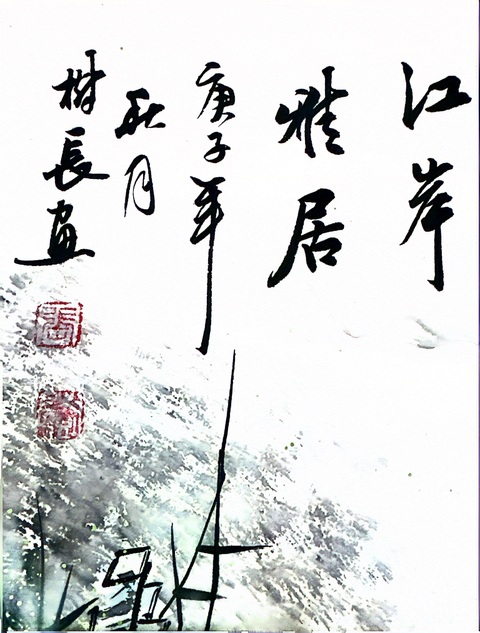 江岸
雅居
庚子年
秋月
树長画